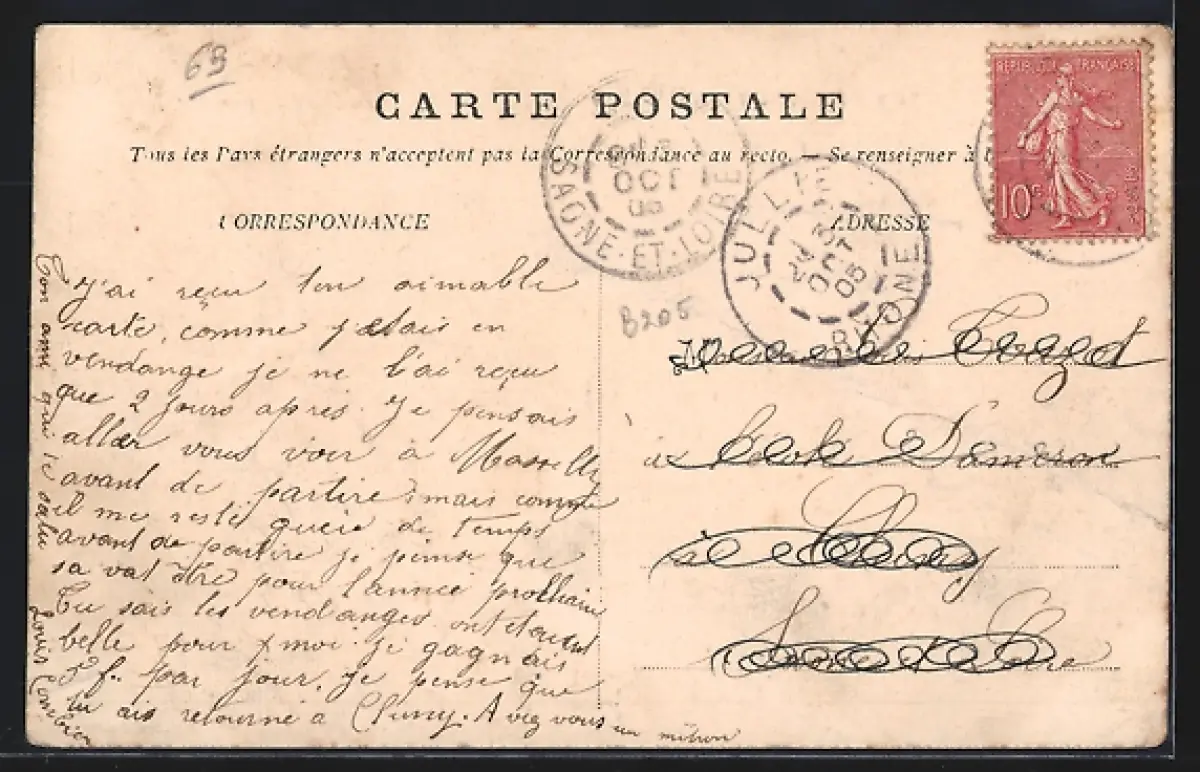 69
CARTE POSTALE
Tous les Pays étrangers n'acceptent pas la Correspondance au recto. — Se renseigner à
CORRESPONDANCE
ADRESSE
REPUBLIQUE FRANÇAISE
10c
OCT
05
SAONE-ET-LOIRE
JULLIE
3
OCT
05
RHONE
8205
J'ai reçu ton aimable
carte, comme j'etais en
vendange je ne l'ai reçu
que 2 jours après. Je pensais
aller vous voir à
avant de partire, mais comme
il me reste de temps
avant de partire je pense que
sa vat être pour l'année prochaine
Tu sais les vendanges ont
belle pour moi je gagnais
3 f. par jour. Je pense que
tu ais retourné à Cluny. Avez vous
Ton ami qui te salu
Louis Combier
Dameron
à Cluny
Saone et Loire